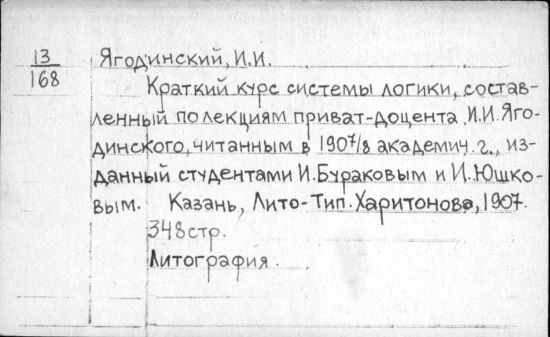 13
168
Ягодинский, И.И.
Краткий курс системы логики, состав-
ленный по лекциям приват-доцента И.И. Яго-
динского, читанным в 1907/8 академич. г., из-
данный студентами И. Бураковым и И. Юшко-
вым. Казань, Лито-Тип. Харитонова, 1907.
348 стр.
Литография.